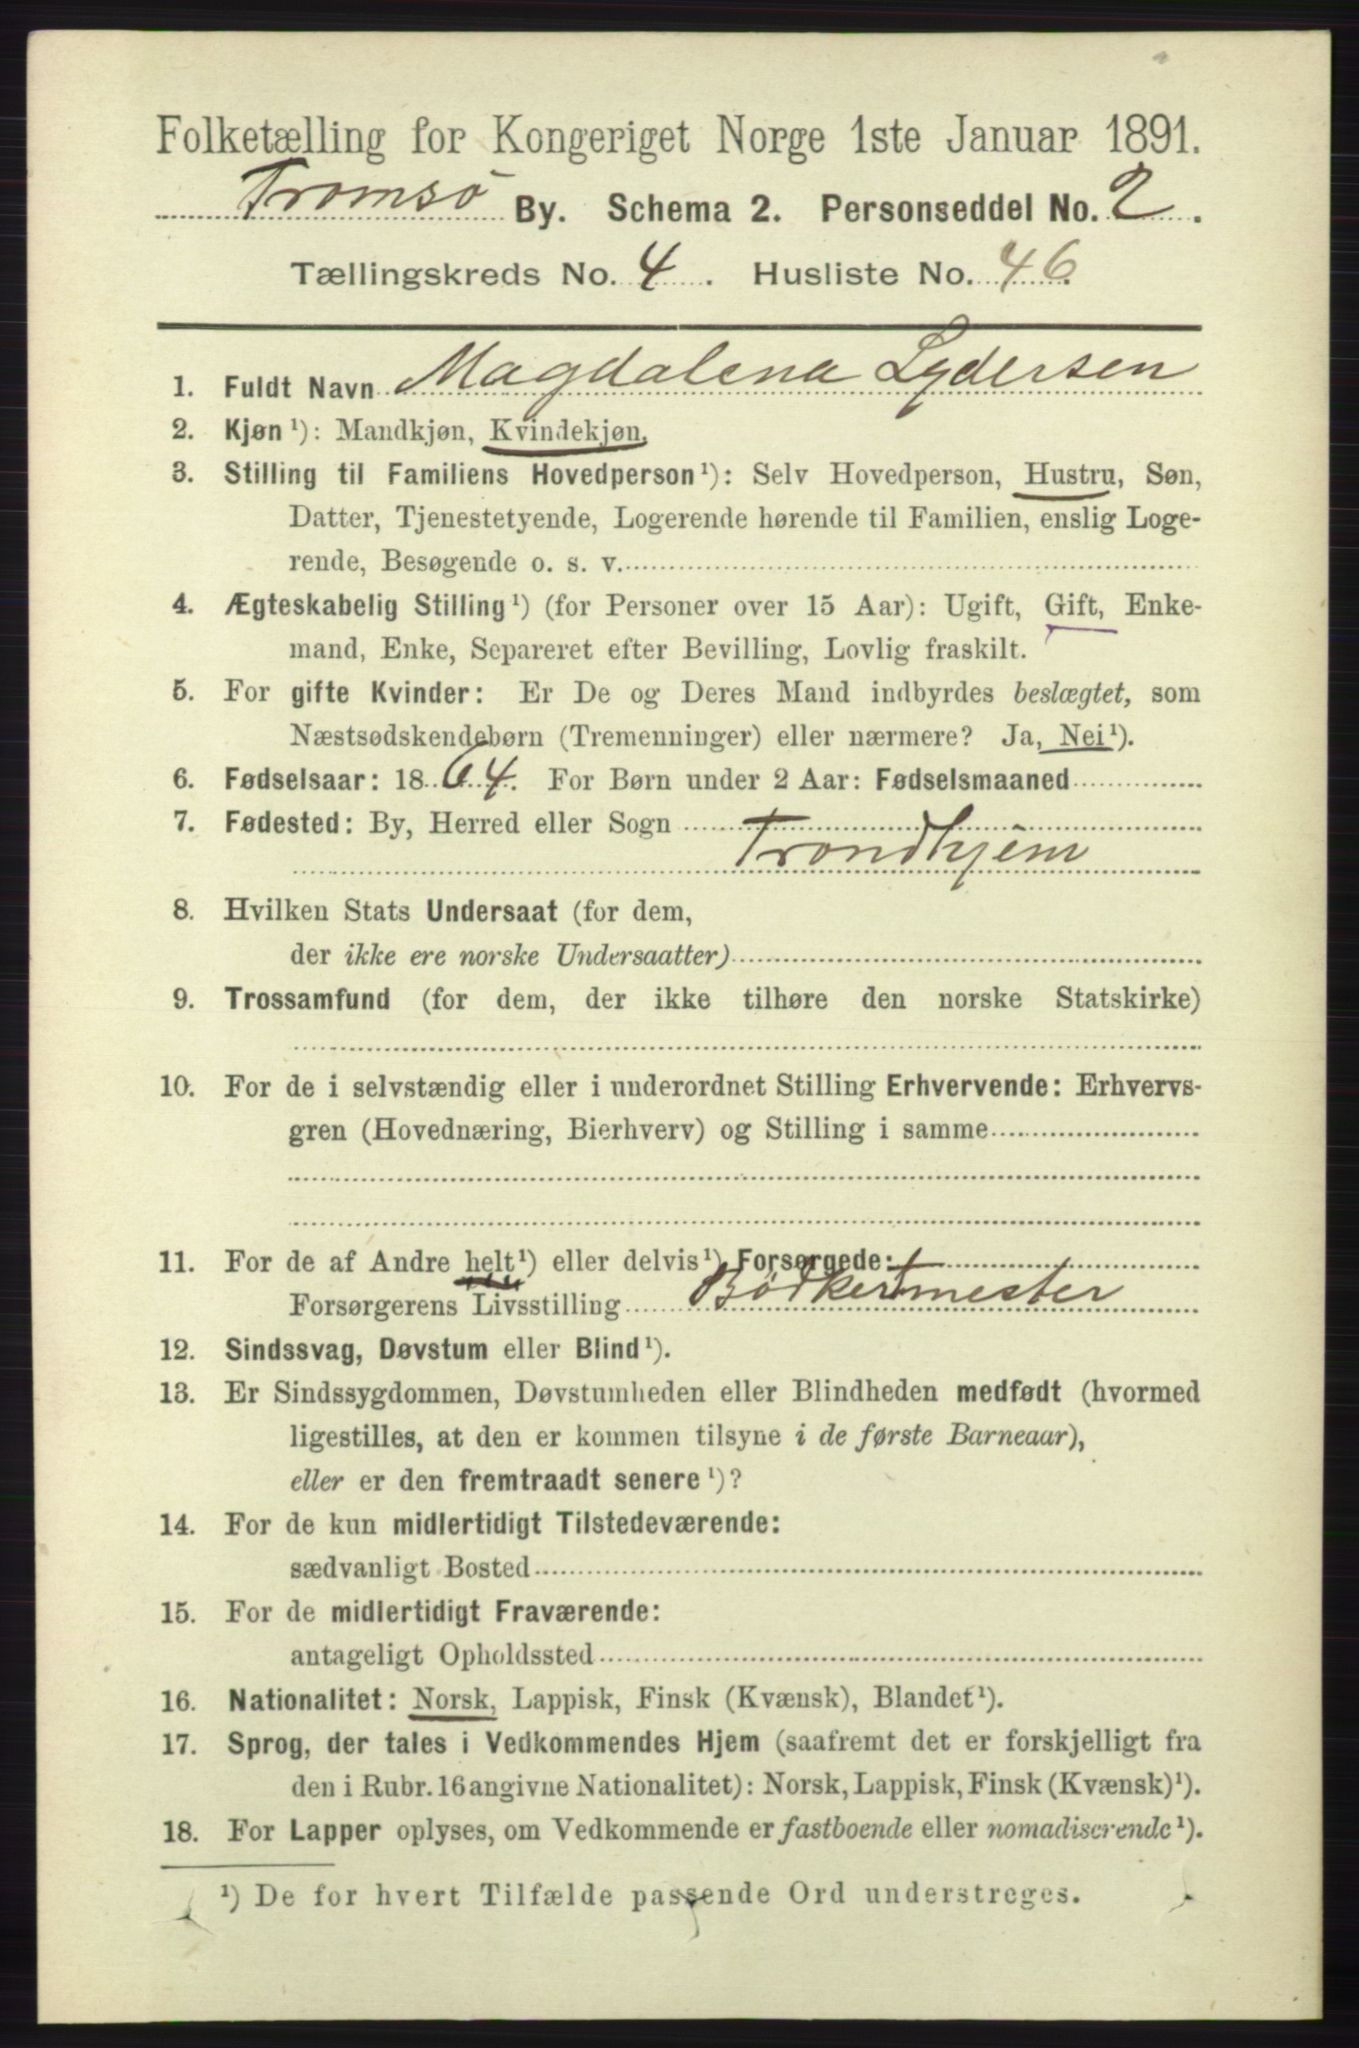 Folketælling for Kongeriget Norge 1ste Januar 1891.
Tromsö By. Schema 2. Personseddel No. 2.
Tællingskreds No. 4. Husliste No. 46.
1. Fuldt Navn Magdalena Lydersen
2. Kjøn ¹): Mandkjøn, Kvindekjøn.
3. Stilling til Familiens Hovedperson ¹): Selv Hovedperson, Hustru, Søn,
Datter, Tjenestetyende, Logerende hørende til Familien, enslig Loge-
rende, Besøgende o. s. v.
4. Ægteskabelig Stilling ¹) (for Personer over 15 Aar): Ugift, Gift, Enke-
mand, Enke, Separeret efter Bevilling, Lovlig fraskilt.
5. For gifte Kvinder: Er De og Deres Mand indbyrdes beslægtet, som
Næstsødskendebørn (Tremenninger) eller nærmere? Ja, Nei ¹).
6. Fødselsaar: 1864. For Børn under 2 Aar: Fødselsmaaned
7. Fødested: By, Herred eller Sogn
Trondhjem
8. Hvilken Stats Undersaat (for dem,
der ikke ere norske Undersaatter)
9. Trossamfund (for dem, der ikke tilhøre den norske Statskirke)
10. For de i selvstændig eller i underordnet Stilling Erhvervende: Erhvervs-
gren (Hovednæring, Bierhverv) og Stilling i samme
11. For de af Andre helt ¹) eller delvis ¹) Forsørgede:
Forsørgerens Livsstilling Bödkermester
12. Sindssvag, Døvstum eller Blind ¹).
13. Er Sindssygdommen, Døvstumheden eller Blindheden medfødt (hvormed
ligestilles, at den er kommen tilsyne i de første Barneaar),
eller er den fremtraadt senere ¹)?
14. For de kun midlertidigt Tilstedeværende:
sædvanligt Bosted
15. For de midlertidigt Fraværende:
antageligt Opholdssted
16. Nationalitet: Norsk, Lappisk, Finsk (Kvænsk), Blandet ¹).
17. Sprog, der tales i Vedkommendes Hjem (saafremt det er forskjelligt fra
den i Rubr. 16 angivne Nationalitet): Norsk, Lappisk, Finsk (Kvænsk) ¹).
18. For Lapper oplyses, om Vedkommende er fastboende eller nomadiserende ¹).
¹) De for hvert Tilfælde passende Ord understreges.